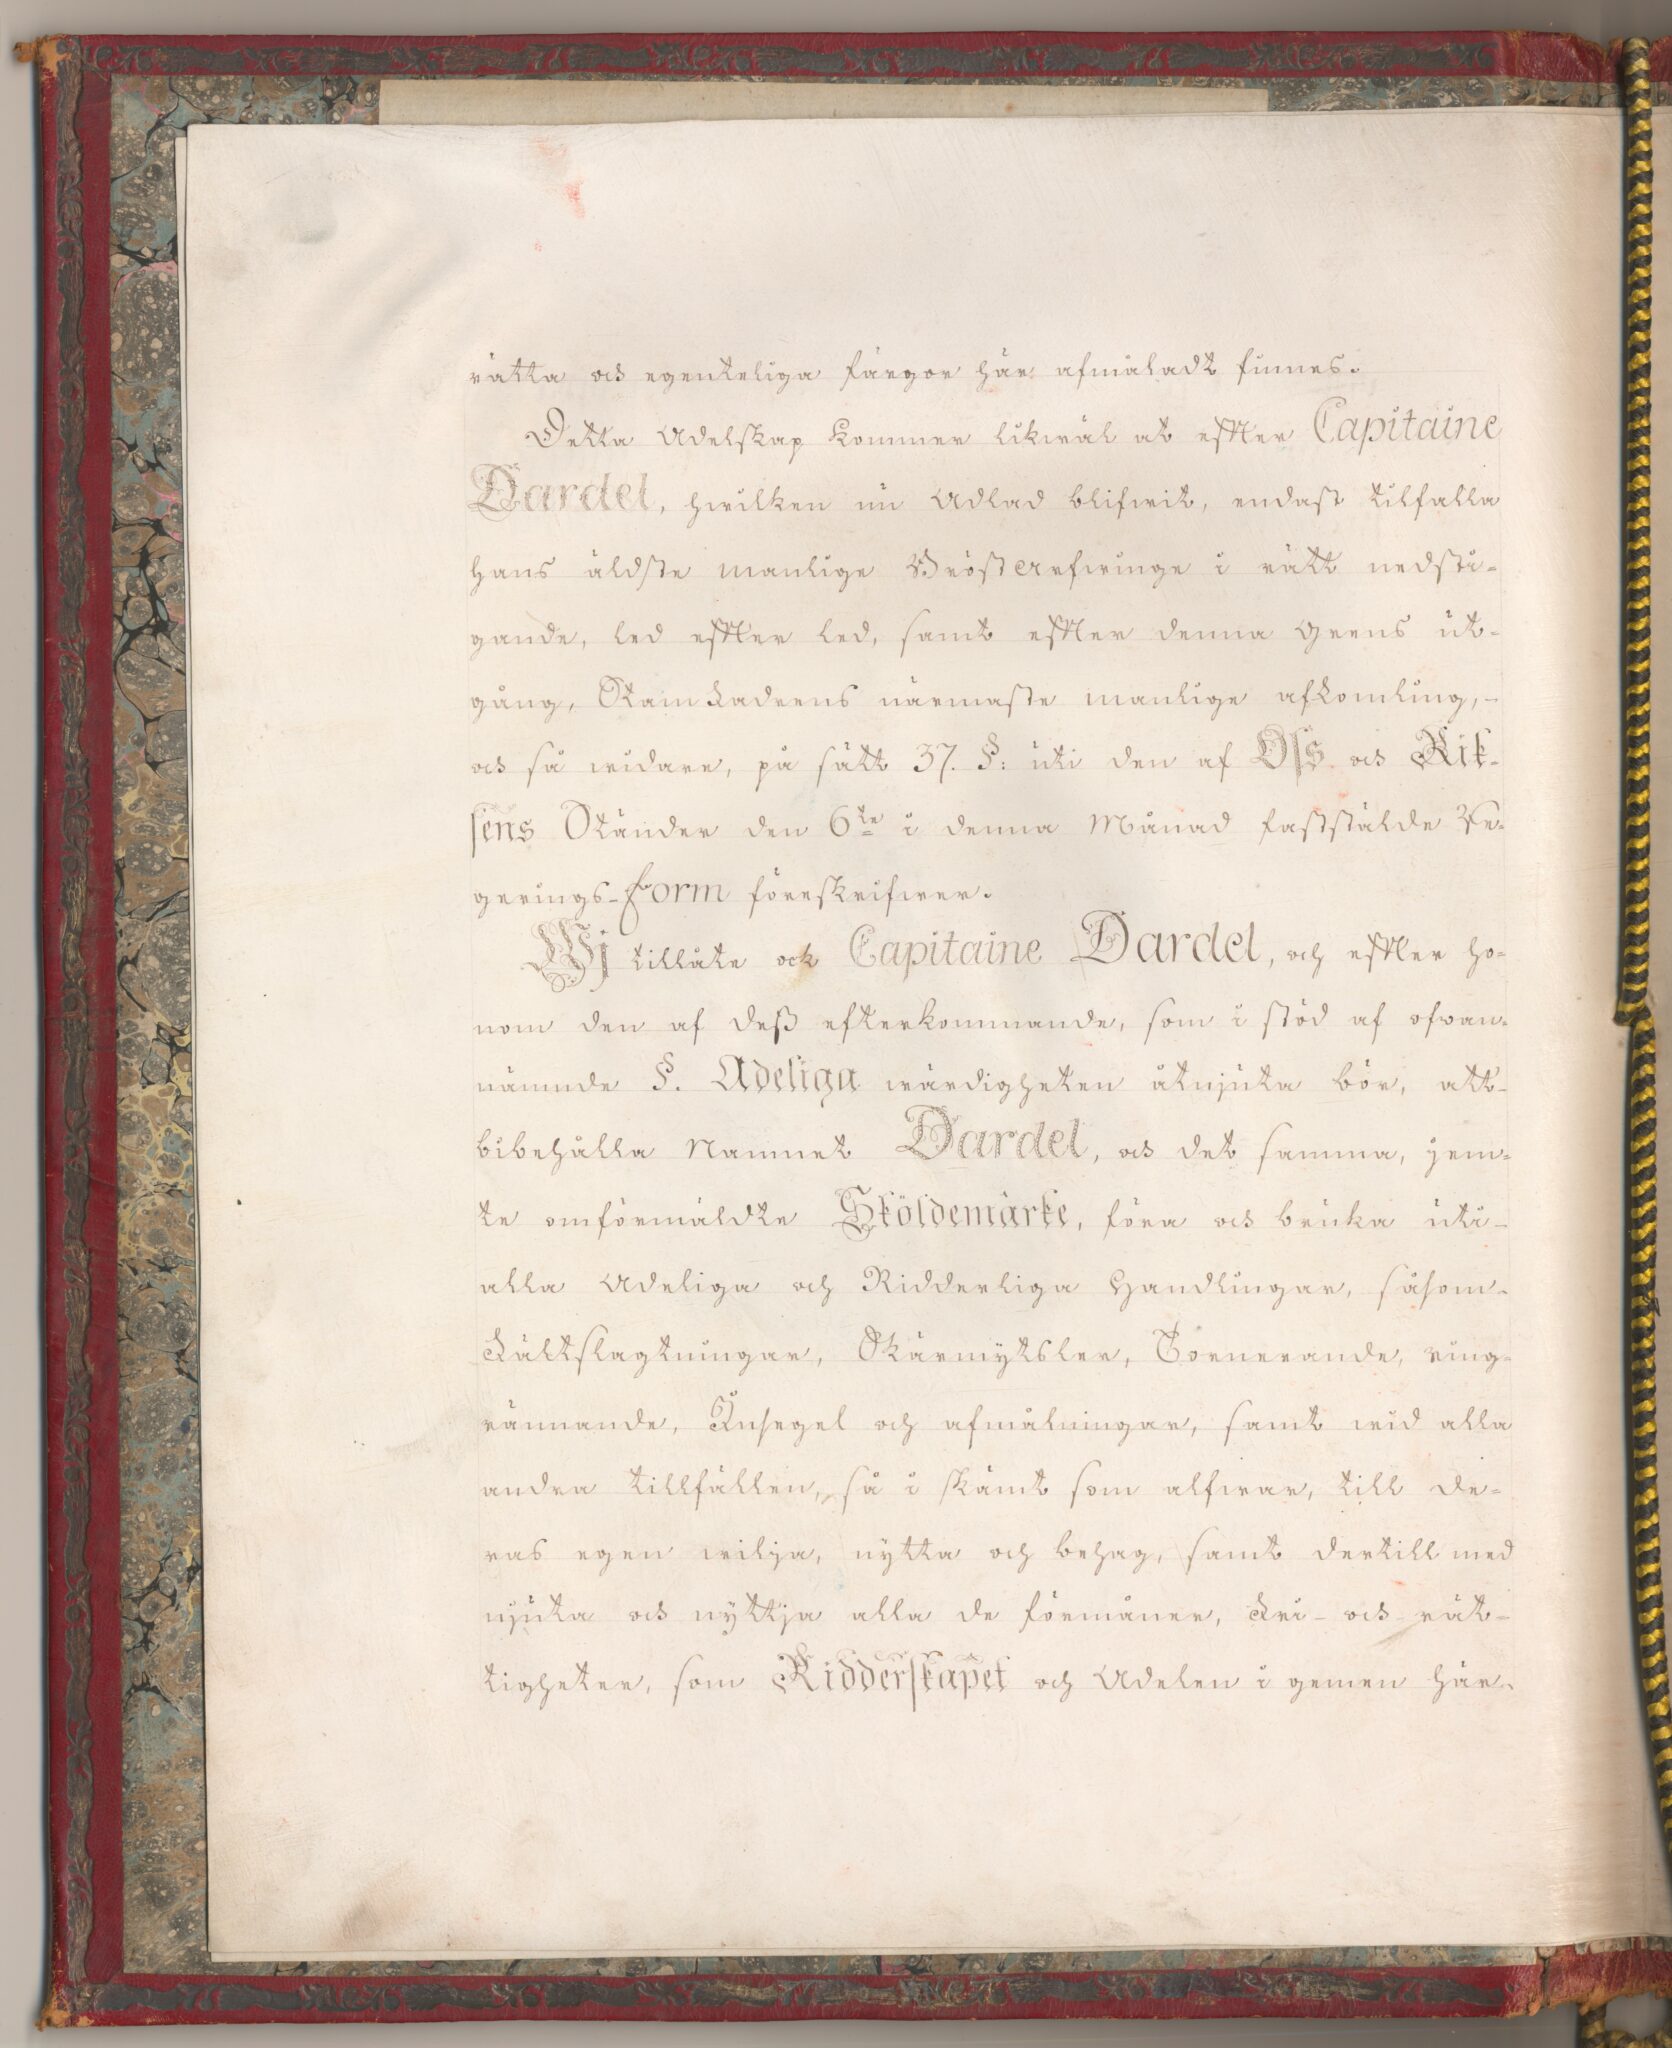 rätta och egenteliga färgor här afmåladt finnes.
Detta Adelskap kommer likwäl at effter Capitaine
Dardel, hwilken nu Adlad blifwit, endast tilfalla
hans äldste manlige BröstArfwinge i rätt nedsti-
gande, led effter led, samt effter denna Grens ut-
gång, Stamfadrens närmaste manlige afkomling,-
och så widare, på sätt 37. §: uti den af Oss och Rik-
sens Ständer den 6te i denna Månad fastställde Re-
gerings-form föreskrifwer.
Wj tillåte ock Capitaine Dardel, och effter ho-
nom den af deß efterkommande, som i stöd af ofvan-
nämnde §. Adeliga wärdigheten åtnjuta bör, att-
bibehålla Namnet Dardel, och det samma, jem-
te omförmäldte Sköldemärke, föra och bruka uti-
alla Adeliga och Ridderliga Handlingar, såsom-
Fältslagtningar, Skärmytsler, Tornerande, ring-
rännande, Insegel och afmålningar, samt wid alla
andra tillfällen, så i skämt som alfwar, till de-
ras egen wilja, nytta och behag, samt dertill med
njuta och nyttja alla de förmåner, Fri- och rät-
tigheter, som Ridderskapet och Adelen i gemen här-